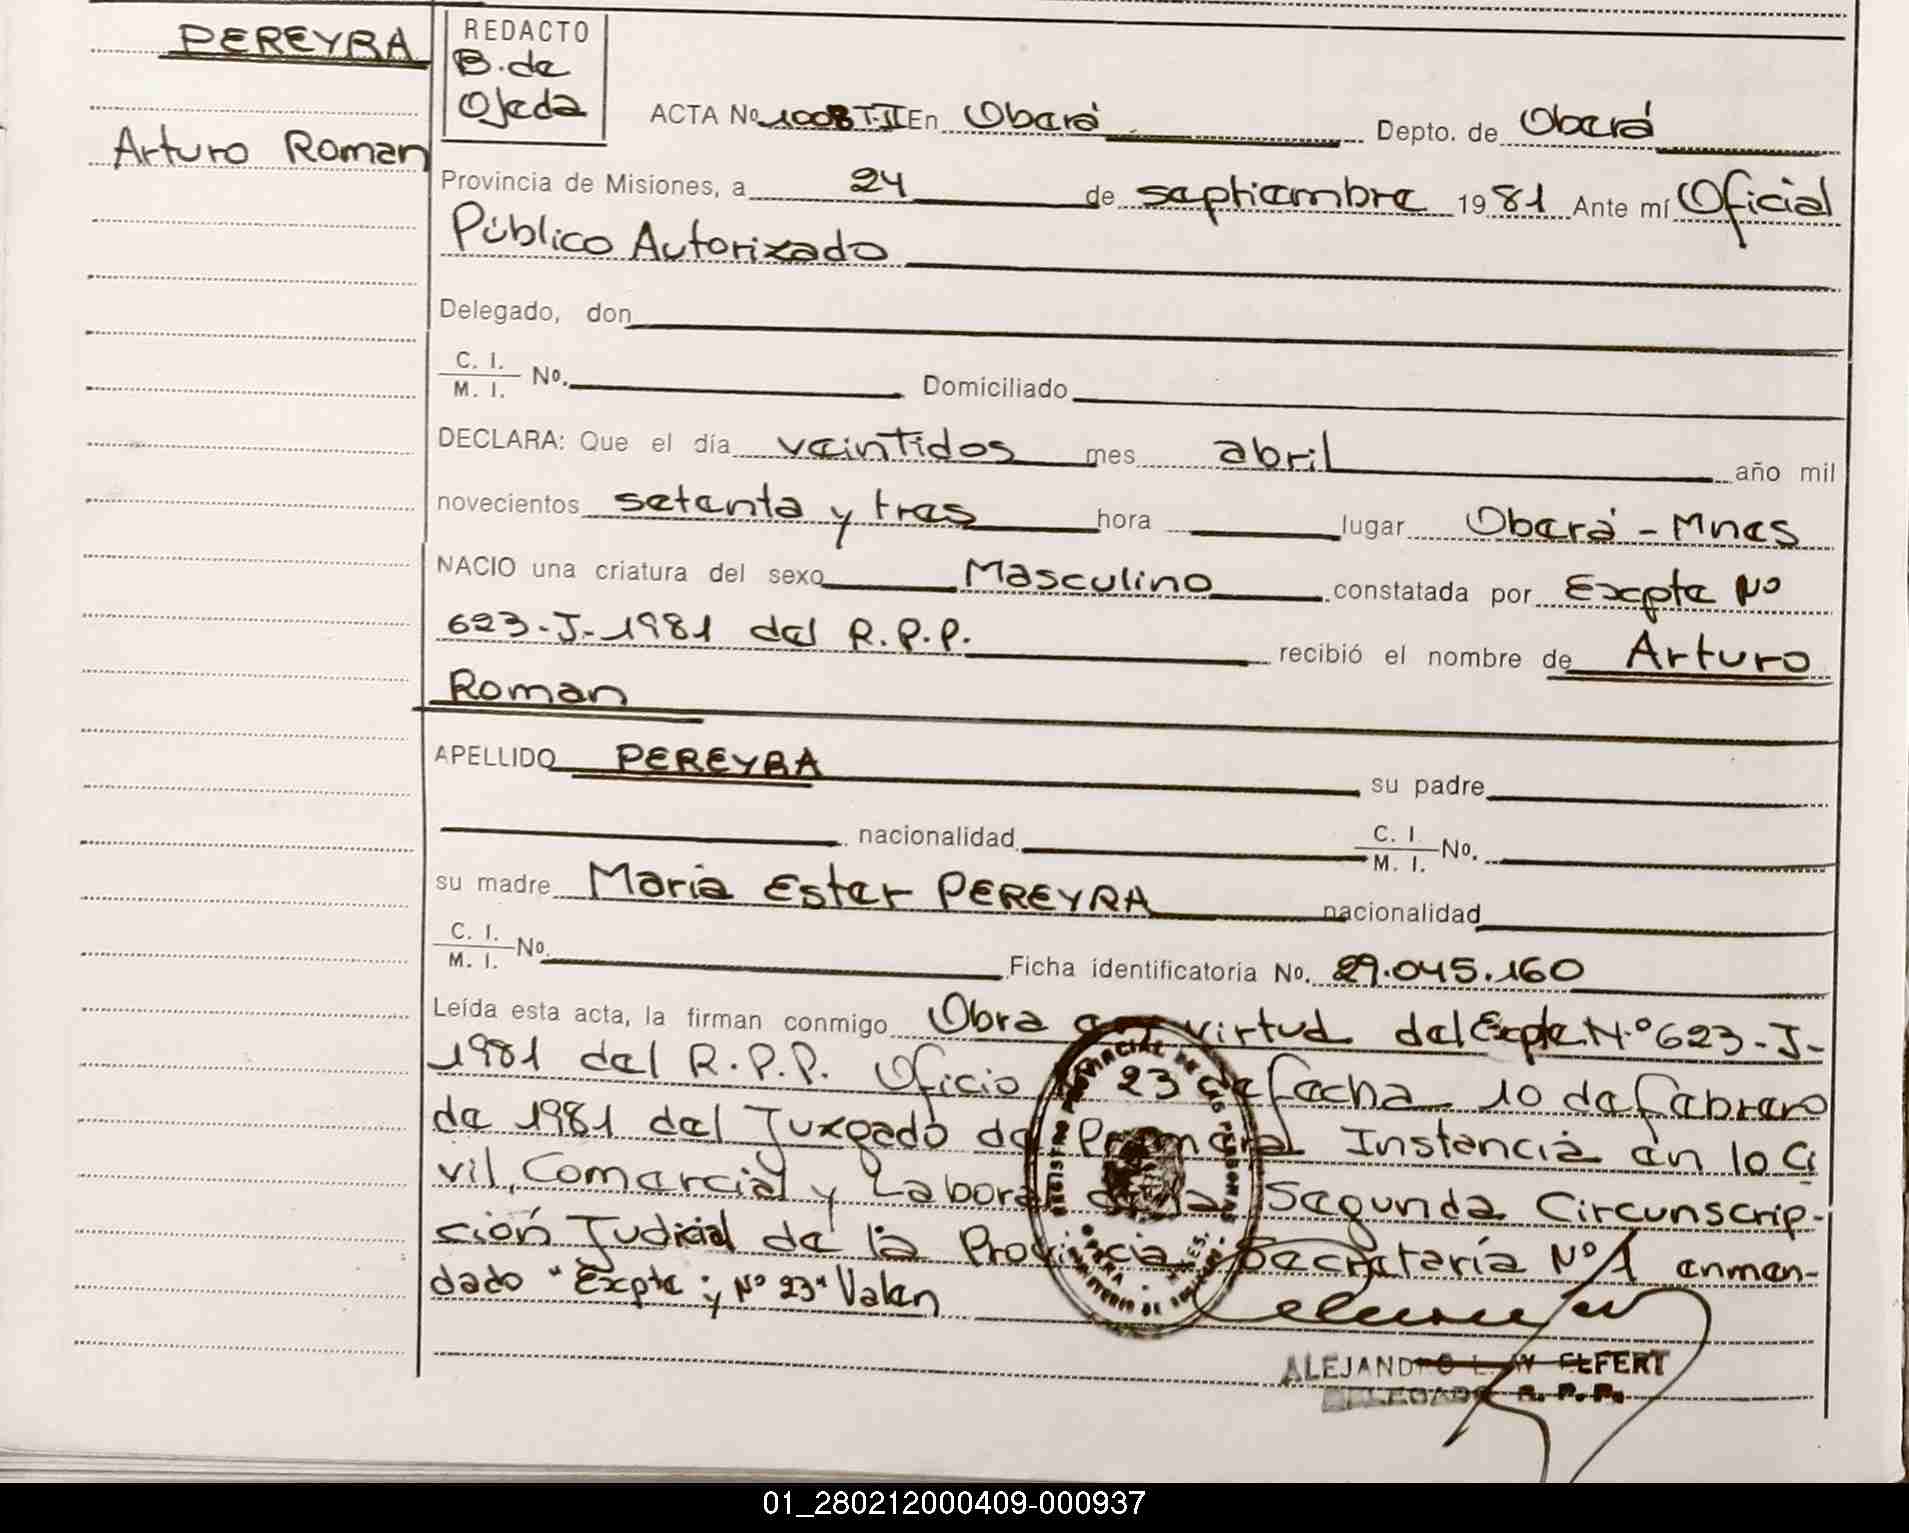 PEREYRA
Arturo Roman
REDACTO
B. de
Ojeda
ACTA No. 1008 T-II En Oberá Depto. de Oberá
Provincia de Misiones, a 24 de septiembre 1981 Ante mí Oficial
Público Autorizado
Delegado, don
C. I.
M. I. No. Domiciliado
DECLARA: Que el día veintidos mes abril año mil
novecientos setenta y tres hora lugar Oberá - Mnes
NACIO una criatura del sexo Masculino constatada por Expte Nº
623-J-1981 del R.P.P. recibió el nombre de Arturo
Roman
APELLIDO PEREYRA su padre
nacionalidad C. I. M. I. No.
su madre María Ester PEREYRA nacionalidad
C. I.
M. I. No. Ficha identificatoria No. 29.045.160
Leída esta acta, la firman conmigo Obra en virtud del Expte N.º 623-J-
1981 del R.P.P. Oficio 23 de fecha 10 de febrero
de 1981 del Juzgado de Primera Instancia en lo Ci
vil, Comercial y Laboral de la Segunda Circunscrip-
ción Judicial de la Provincia, Secretaría Nº 1 enmen-
dado "Expte ; y Nº 23" Valen
REGISTRO PROVINCIAL DE LAS PERSONAS
OBERA - MNES.
ALEJANDRO L. W ELFERT
DELEGADO R. P. P.
01_280212000409-000937